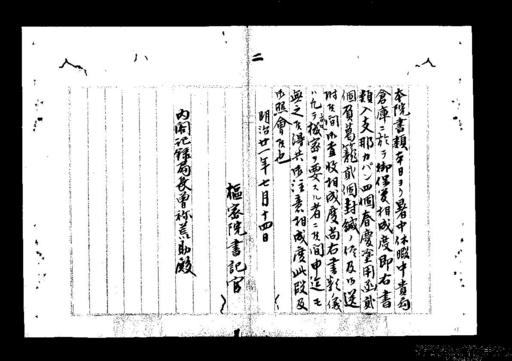 本院書類本日ヨリ暑中休暇中貴局
倉庫ニ於テ御保管相成度即右書
類入支那カバン四個春慶塗用函貳
個負葛籠貳個封鍼ノ侭及御送
附候間御査收相成度尚右書類儀
ハ九テ機密ヲ要スル者ニ候間申迄モ
無之候得共御注意相成度此段及
御照會候也
明治廿一年七月十四日
樞密院書記官
内閣記録局長曽禰荒助殿
二